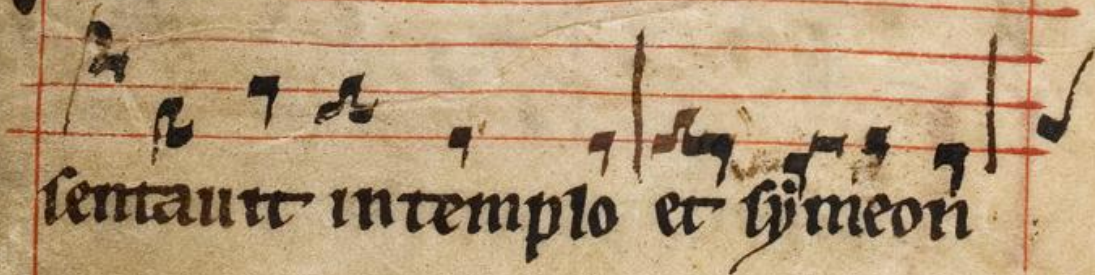 sentauit in templo et symeon